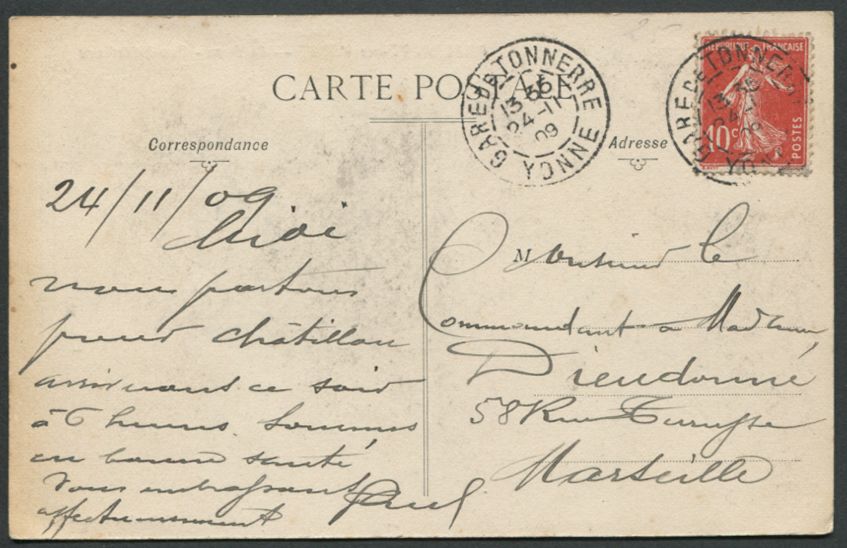 CARTE POSTALE
GARE DE TONNERRE
13 35
24 -11
09
YONNE
REPUBLIQUE FRANÇAISE
10c
POSTES
GARE DE TONNERRE
13 35
24 -1
09
YONNE
Correspondance
24/11/09
Midi
nous partons
pour Châtillon
arriverons ce soir
à 6 heures. Sommes
en bonne santé
Vous embrassant
affectueusement
Paul
Adresse
Monsieur le
Commandant & Madame
Dieudonné
58 Rue
Marseille